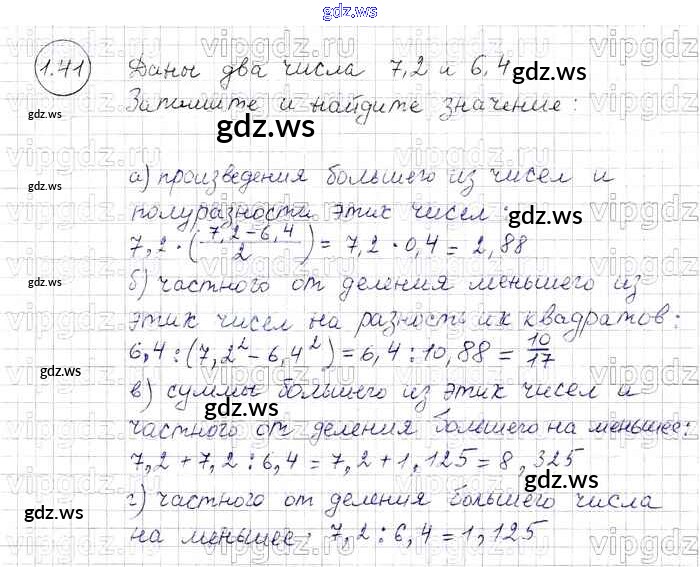 gdz.ws
1.41 Даны два числа 7,2 и 6,4
Запишите и найдите значение:
а) произведения большего из чисел и
полуразности этих чисел:
7,2 · ( (7,2 - 6,4) / 2 ) = 7,2 · 0,4 = 2,88
б) частного от деления меньшего из
этих чисел на разность их квадратов:
6,4 : (7,2² - 6,4²) = 6,4 : 10,88 = 10/17
в) суммы большего из этих чисел и
частного от деления большего на меньшее:
7,2 + 7,2 : 6,4 = 7,2 + 1,125 = 8,325
г) частного от деления большего числа
на меньшее: 7,2 : 6,4 = 1,125